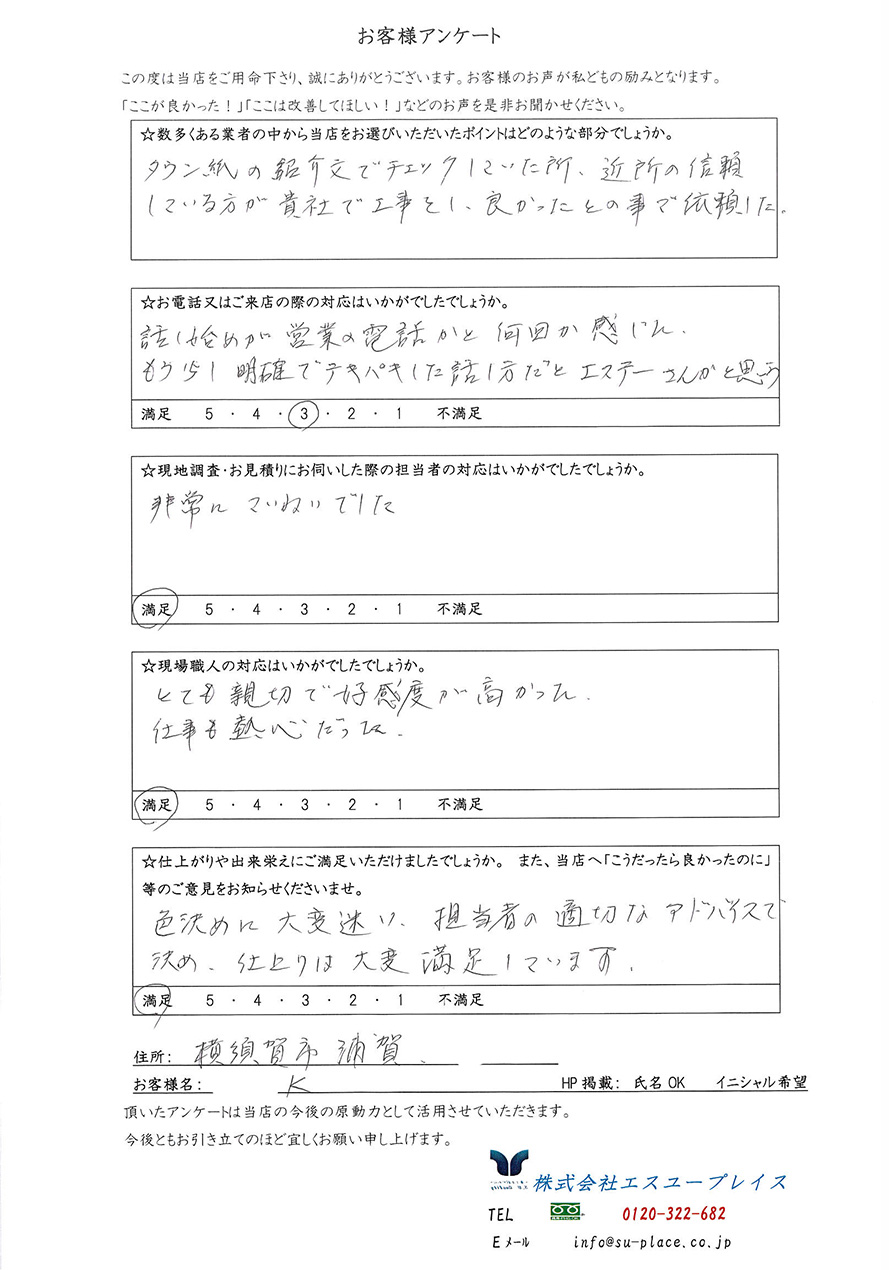 お客様アンケート
この度は当店をご用命下さり、誠にありがとうございます。お客様のお声が私どもの励みとなります。
「ここが良かった！」「ここは改善してほしい！」などのお声を是非お聞かせください。
☆数多くある業者の中から当店をお選びいただいたポイントはどのような部分でしょうか。
タウン紙の紹介文でチェックしていた所、近所の信頼
している方が貴社で工事をし、良かったとの事で依頼した。
☆お電話又はご来店の際の対応はいかがでしたでしょうか。
話し始めが営業の電話かと何回か感じた.
もう少し明確でテキパキした話し方だとエステーさんかと思う
満足 5 ・ 4 ・ 3 ・ 2 ・ 1 不満足
☆現地調査・お見積りにお伺いした際の担当者の対応はいかがでしたでしょうか。
非常にていねいでした
満足 5 ・ 4 ・ 3 ・ 2 ・ 1 不満足
☆現場職人の対応はいかがでしたでしょうか。
とても親切で好感度が高かった.
仕事も熱心だった.
満足 5 ・ 4 ・ 3 ・ 2 ・ 1 不満足
☆仕上がりや出来栄えにご満足いただけましたでしょうか。 また、当店へ「こうだったら良かったのに」
等のご意見をお知らせくださいませ。
色決めに大変迷い、担当者の適切なアドバイスで
決め、仕上りは大変満足しています.
満足 5 ・ 4 ・ 3 ・ 2 ・ 1 不満足
住所： 横須賀市浦賀
お客様名： K HP掲載： 氏名OK イニシャル希望
頂いたアンケートは当店の今後の原動力として活用させていただきます。
今後ともお引き立てのほど宜しくお願い申し上げます。
株式会社エスユープレイス
TEL 0120-322-682
Eメール info@su-place.co.jp